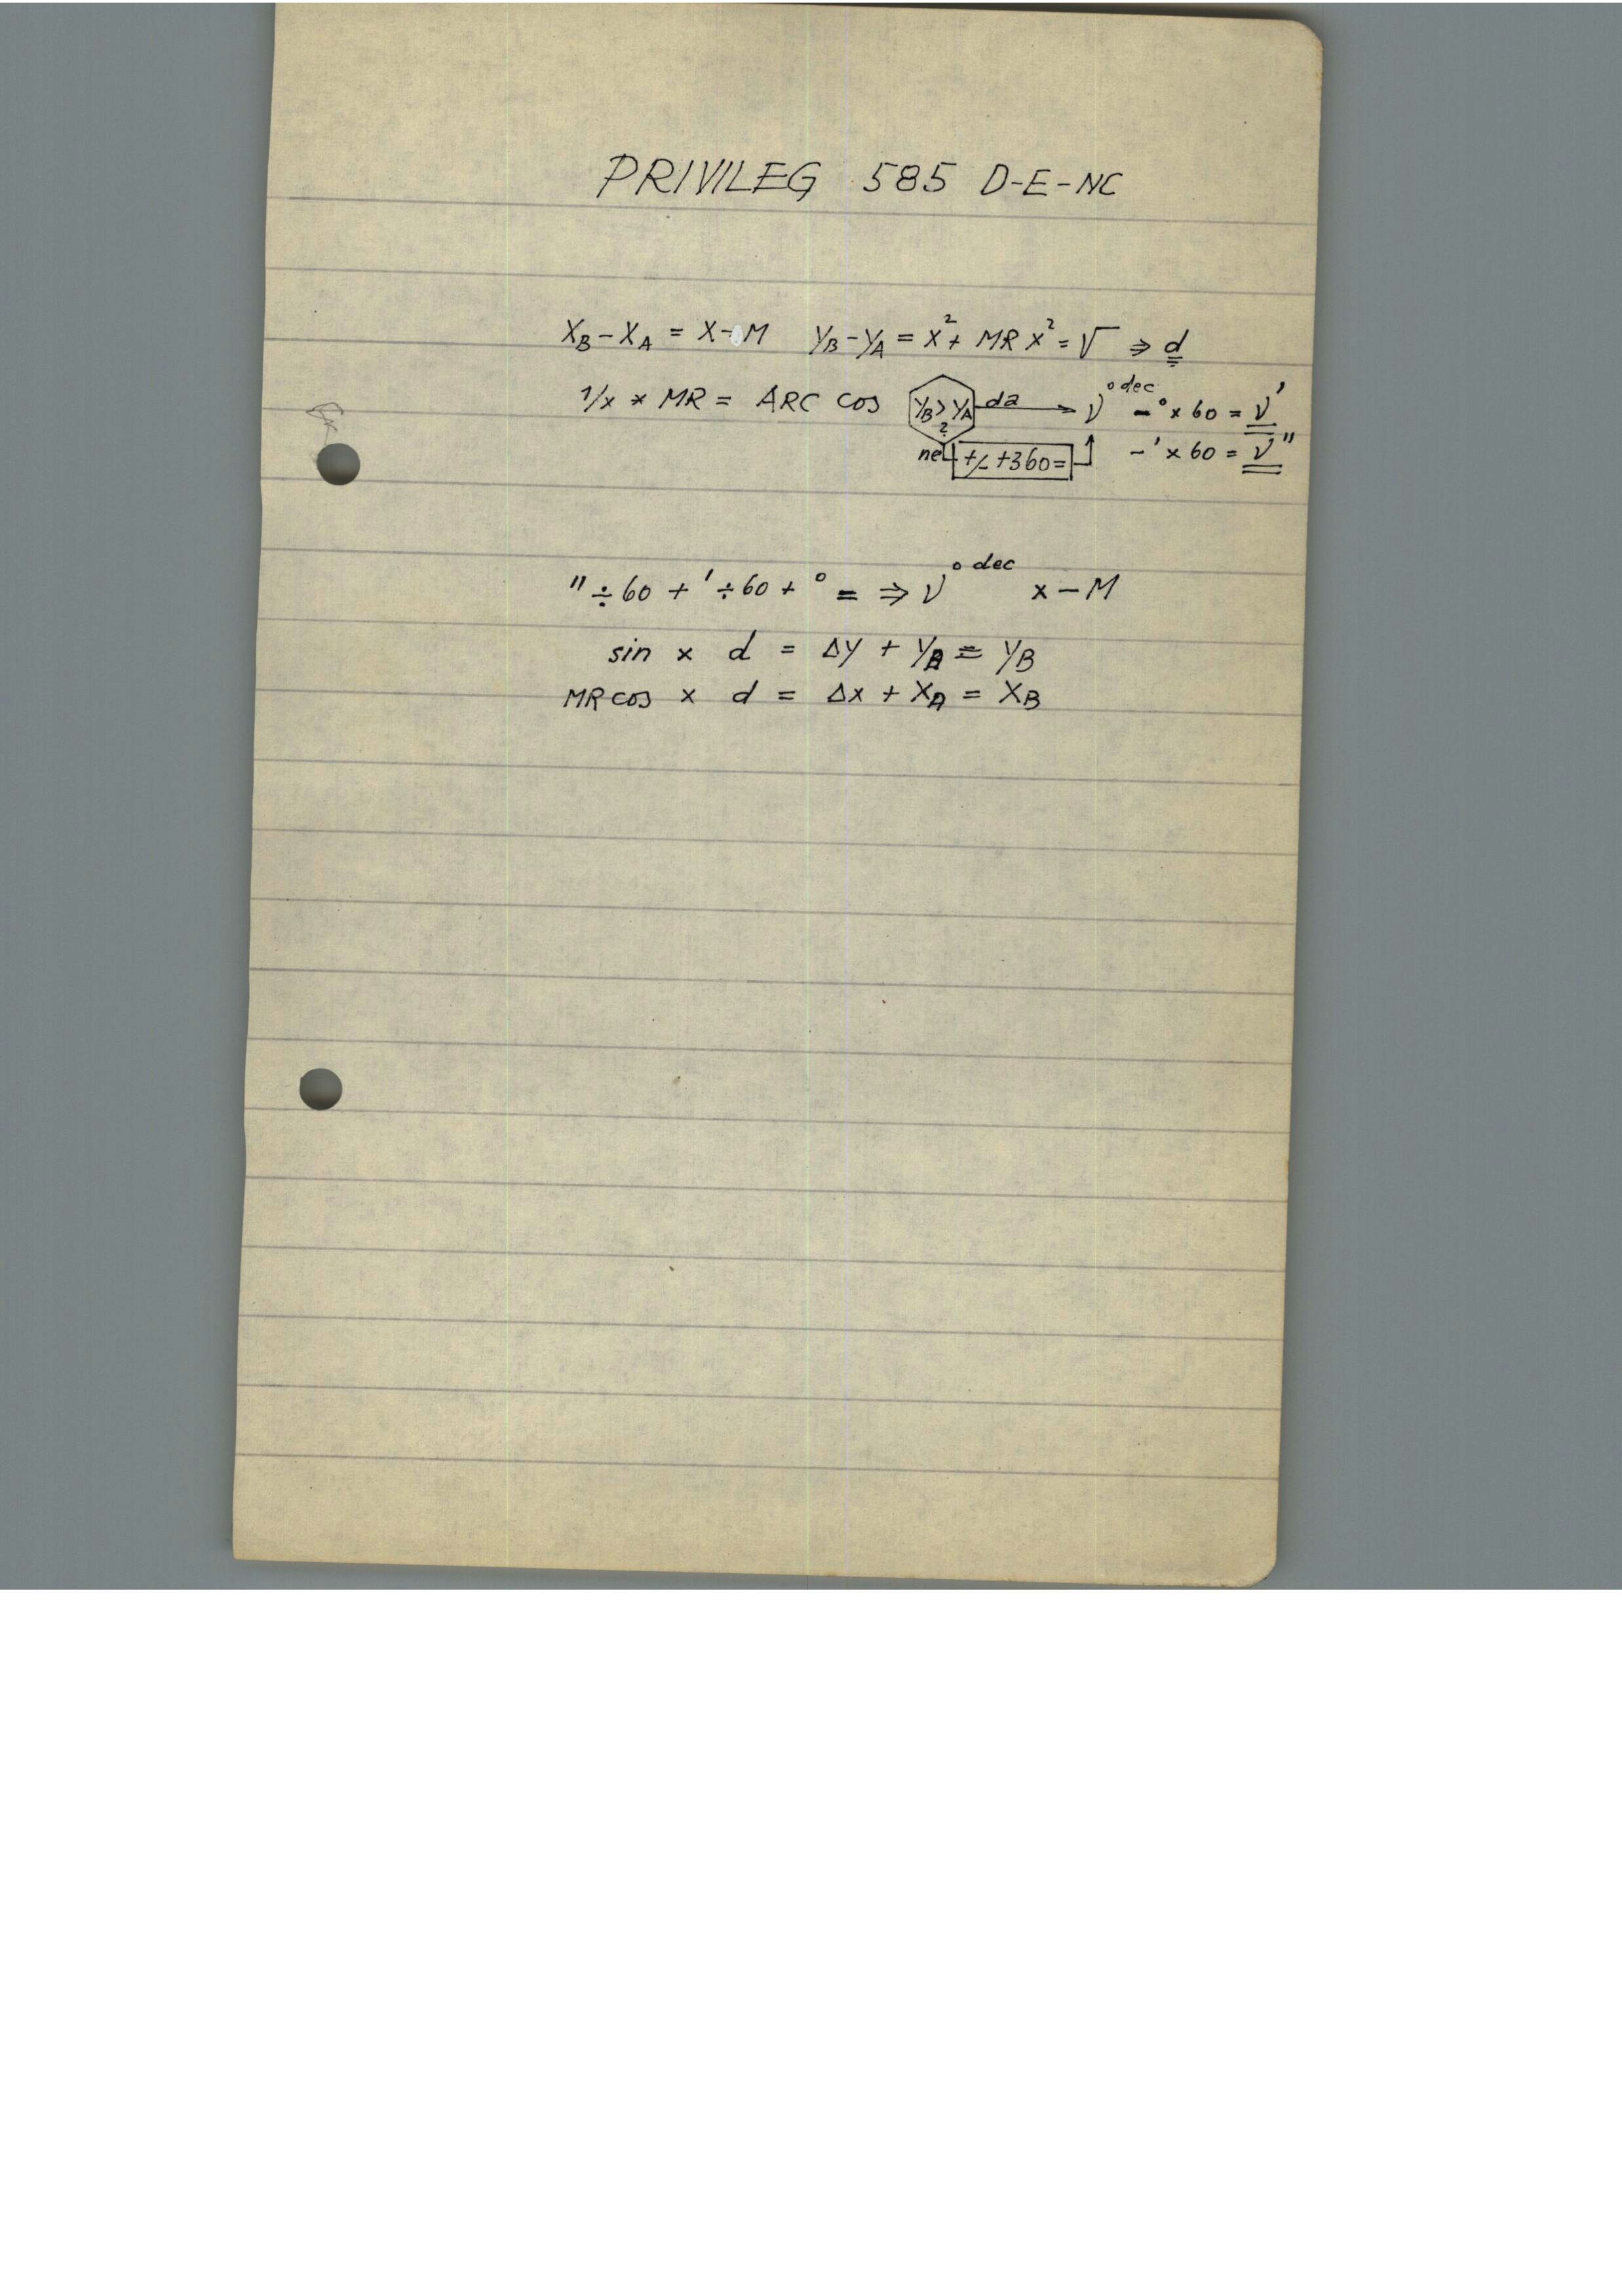 PRIVILEG 585 D-E-NC
X_B - X_A = X-M Y_B - Y_A = X² + MR X² = √ ⇒ d
1/x * MR = ARC cos Y_B > Y_A ? da → ν° dec - ° x 60 = ν'
ne +/- +360= - ' x 60 = ν"
" ÷ 60 + ' ÷ 60 + ° = ⇒ ν° dec x-M
sin x d = Δy + Y_A = Y_B
MR cos x d = Δx + X_A = X_B